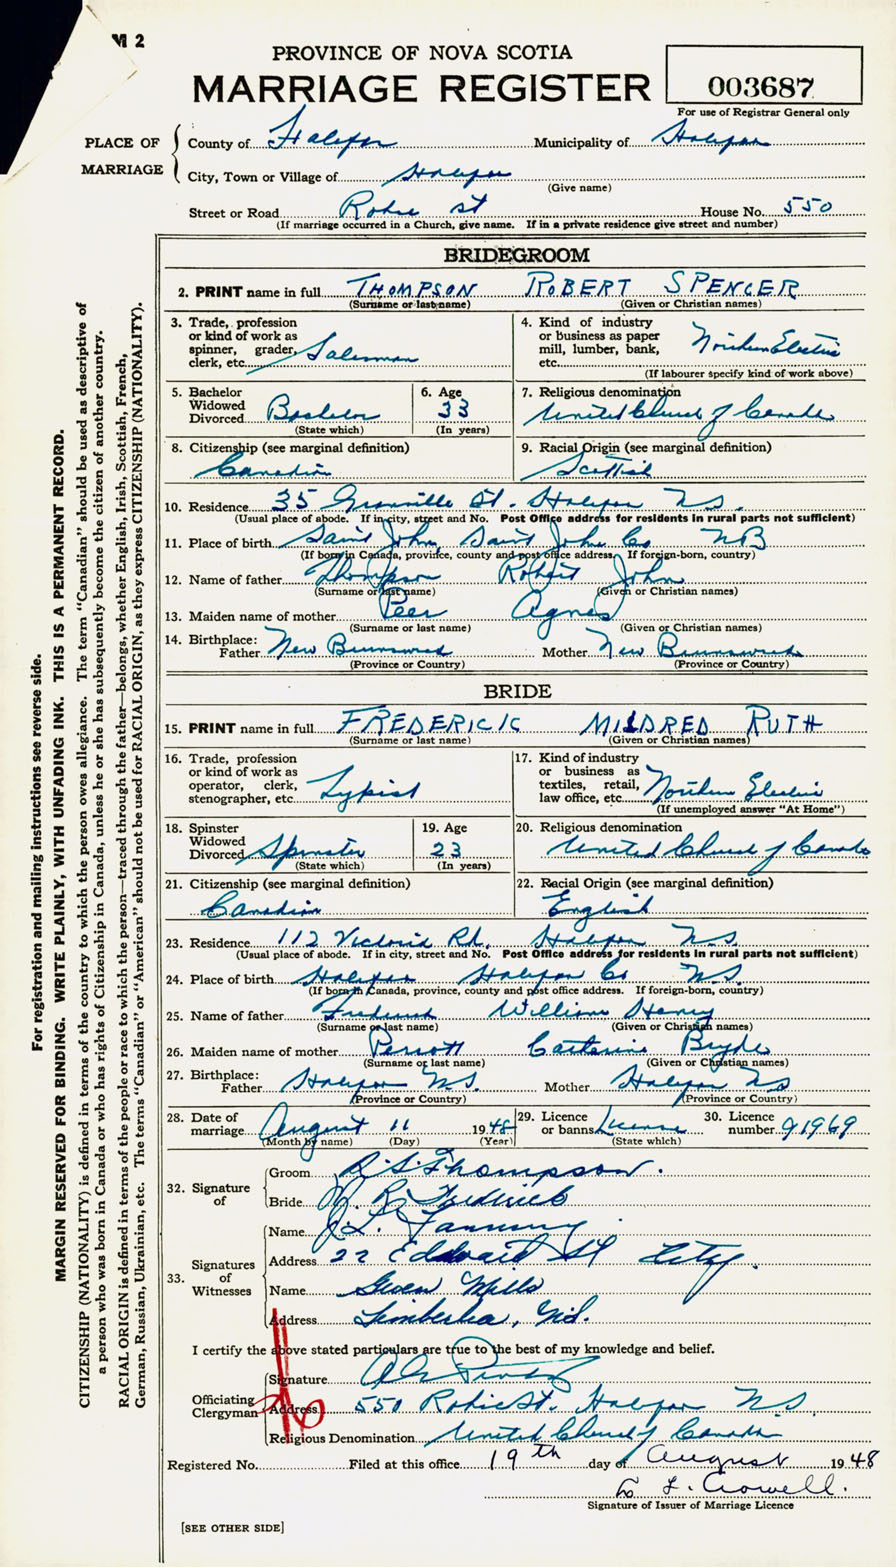 M 2
PROVINCE OF NOVA SCOTIA
MARRIAGE REGISTER
003687
For use of Registrar General only
PLACE OF MARRIAGE
County of Halifax Municipality of Halifax
City, Town or Village of Halifax
(Give name)
Street or Road Robie St House No. 550
(If marriage occurred in a Church, give name. If in a private residence give street and number)
BRIDEGROOM
2. PRINT name in full THOMPSON ROBERT SPENCER
(Surname or last name) (Given or Christian names)
3. Trade, profession or kind of work as spinner, grader, clerk, etc. Salesman
4. Kind of industry or business as paper mill, lumber, bank, etc. Northern Electric
(If labourer specify kind of work above)
5. Bachelor Widowed Divorced Bachelor
(State which)
6. Age 33
(In years)
7. Religious denomination United Church of Canada
8. Citizenship (see marginal definition) Canadian
9. Racial Origin (see marginal definition) Scottish
10. Residence 35 Granville St. Halifax N.S.
(Usual place of abode. If in city, street and No. Post Office address for residents in rural parts not sufficient)
11. Place of birth Saint John, Saint John Co NB
(If born in Canada, province, county and post office address. If foreign-born, country)
12. Name of father Thompson Robert John
(Surname or last name) (Given or Christian names)
13. Maiden name of mother Peer Agnes
(Surname or last name) (Given or Christian names)
14. Birthplace: Father New Brunswick Mother New Brunswick
(Province or Country) (Province or Country)
BRIDE
15. PRINT name in full FREDERICK MILDRED RUTH
(Surname or last name) (Given or Christian names)
16. Trade, profession or kind of work as operator, clerk, stenographer, etc. Typist
17. Kind of industry or business as textiles, retail, law office, etc. Northern Electric
(If unemployed answer "At Home")
18. Spinster Widowed Divorced Spinster
(State which)
19. Age 23
(In years)
20. Religious denomination United Church of Canada
21. Citizenship (see marginal definition) Canadian
22. Racial Origin (see marginal definition) English
23. Residence 112 Victoria Rd. Halifax N.S.
(Usual place of abode. If in city, street and No. Post Office address for residents in rural parts not sufficient)
24. Place of birth Halifax Halifax Co N.S.
(If born in Canada, province, county and post office address. If foreign-born, country)
25. Name of father Frederick William Henry
(Surname or last name) (Given or Christian names)
26. Maiden name of mother Perrott Catherine Bryde
(Surname or last name) (Given or Christian names)
27. Birthplace: Father Halifax N.S. Mother Halifax N S
(Province or Country) (Province or Country)
28. Date of marriage August 11 1948
(Month by name) (Day) (Year)
29. Licence or banns License
(State which)
30. Licence number 91969
32. Signature of
Groom R. S. Thompson.
Bride M. R. Frederick
33. Signatures of Witnesses
Name J. L. Fanning
Address 22 Edward St City.
Name Gwen Mills
Address Timberlea, Nd.
I certify the above stated particulars are true to the best of my knowledge and belief.
Officiating Clergyman
Signature
Address 550 Robie St. Halifax N.S.
Religious Denomination United Church of Canada
Registered No. Filed at this office 19th day of August 1948
L. Crowell.
Signature of Issuer of Marriage Licence
[SEE OTHER SIDE]
For registration and mailing instructions see reverse side.
MARGIN RESERVED FOR BINDING. WRITE PLAINLY, WITH UNFADING INK. THIS IS A PERMANENT RECORD.
CITIZENSHIP (NATIONALITY) is defined in terms of the country to which the person owes allegiance. The term "Canadian" should be used as descriptive of
a person who was born in Canada or who has rights of Citizenship in Canada, unless he or she has subsequently become the citizen of another country.
RACIAL ORIGIN is defined in terms of the people or race to which the person—traced through the father—belongs, whether English, Irish, Scottish, French,
German, Russian, Ukrainian, etc. The terms "Canadian" or "American" should not be used for RACIAL ORIGIN, as they express CITIZENSHIP (NATIONALITY).